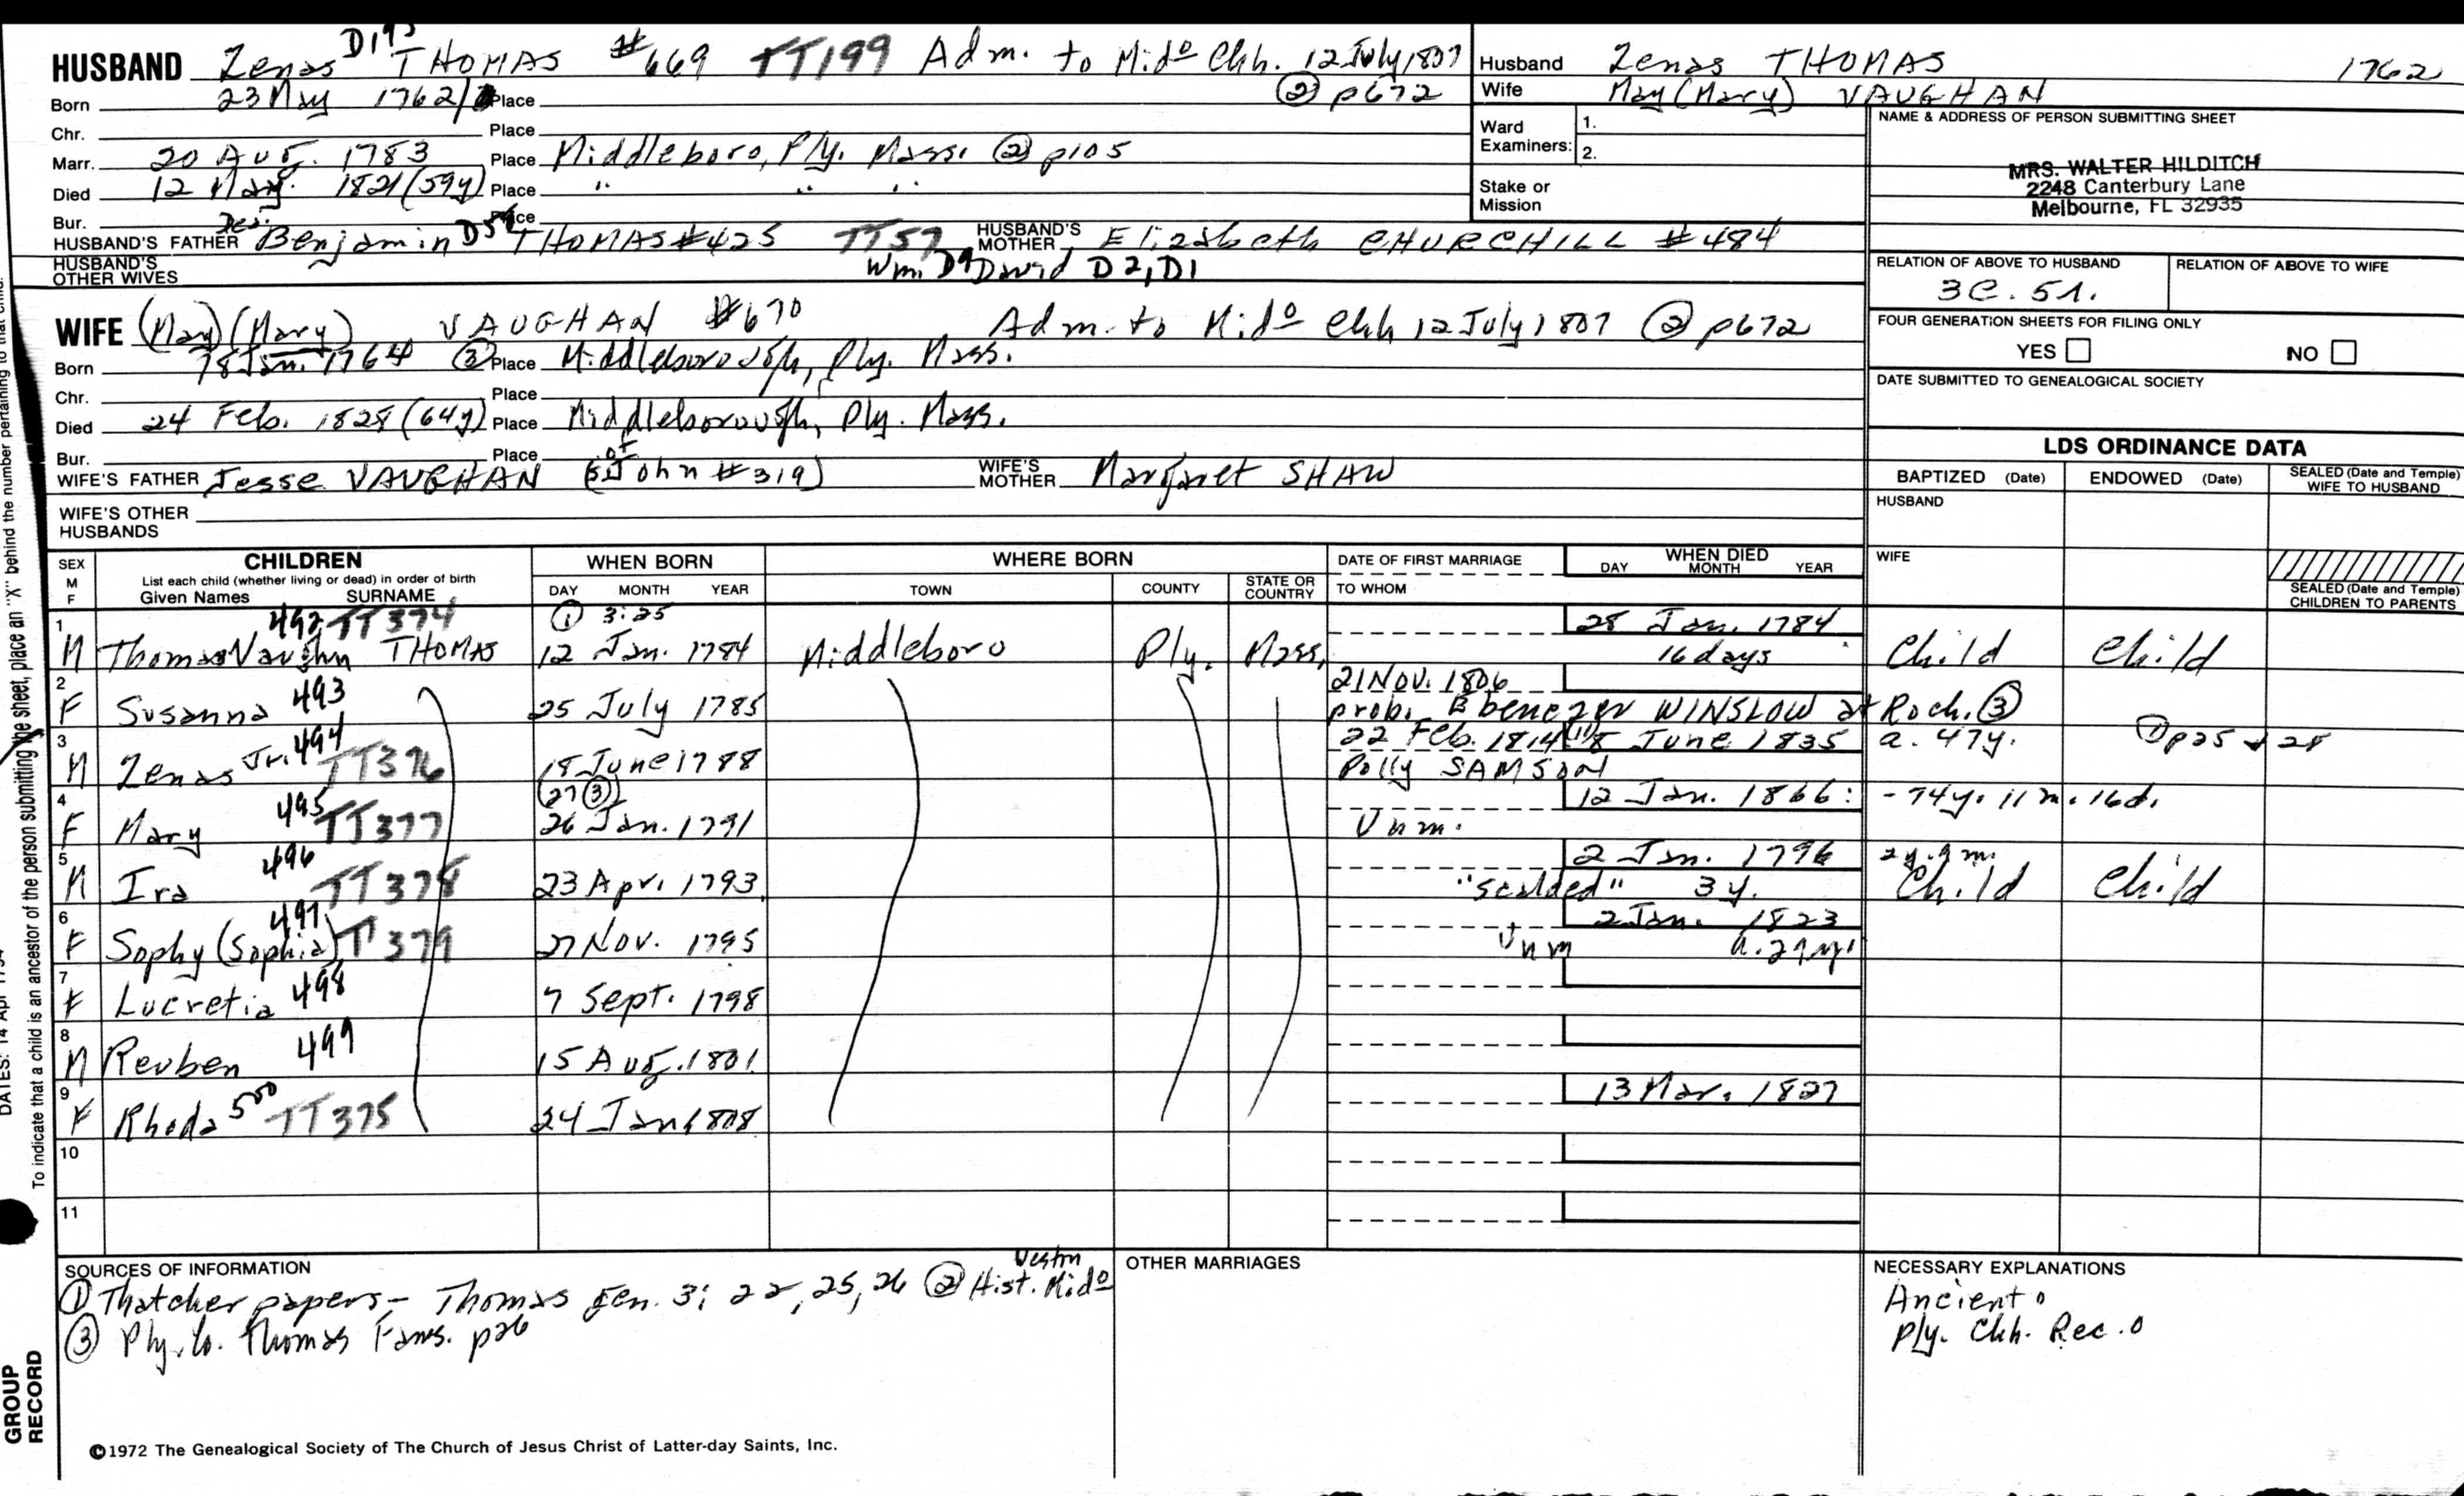 HUSBAND Zenas D195 THOMAS #669 TT199 Adm. to Mido Chh. 12 July 1807
Born 23 May 1762/ Place ② p672
Chr. Place
Marr. 20 Aug. 1783 Place Middleboro, Ply. Mass. ② p105
Died 12 May 1821 (59y) Place " " "
Bur. Place
HUSBAND'S FATHER Benjamin THOMAS #425 TT57 HUSBAND'S MOTHER Elizabeth CHURCHILL #484
HUSBAND'S OTHER WIVES Wm. D9 David D2, D1
Husband Zenas THOMAS 1762
Wife May (Mary) VAUGHAN
Ward Examiners: 1.
2.
Stake or Mission
NAME & ADDRESS OF PERSON SUBMITTING SHEET
MRS. WALTER HILDITCH
2248 Canterbury Lane
Melbourne, FL 32935
RELATION OF ABOVE TO HUSBAND RELATION OF ABOVE TO WIFE
3C. 5r.
WIFE (May) (Mary) VAUGHAN #670 Adm. to Mido Chh 12 July 1807 ② p672
Born 28 Jan. 1764 ③ Place Middleborough, Ply. Mass.
Chr. Place
Died 24 Feb. 1828 (64y) Place Middleborough, Ply. Mass.
Bur. Place
WIFE'S FATHER Jesse VAUGHAN (s of John #319) WIFE'S MOTHER Margaret SHAW
WIFE'S OTHER HUSBANDS
FOUR GENERATION SHEETS FOR FILING ONLY
YES NO
DATE SUBMITTED TO GENEALOGICAL SOCIETY
LDS ORDINANCE DATA
BAPTIZED (Date) ENDOWED (Date) SEALED (Date and Temple) WIFE TO HUSBAND
HUSBAND
WIFE
SEALED (Date and Temple) CHILDREN TO PARENTS
SEX M F CHILDREN WHEN BORN WHERE BORN DATE OF FIRST MARRIAGE WHEN DIED
List each child (whether living or dead) in order of birth
Given Names SURNAME DAY MONTH YEAR TOWN COUNTY STATE OR COUNTRY TO WHOM DAY MONTH YEAR
1 492 TT374 ① 3:25 28 Jan. 1784
M Thomas Vaughn THOMAS 12 Jan. 1784 Middleboro Ply. Mass. 16 days Child Child
2 493 21 Nov. 1806
F Susanna 25 July 1785 prob. Ebenezer WINSLOW at Roch. ③
3 494 22 Feb. 1814 8 June 1835 a. 47y. ① p25 + 28
M Zenas Jr. TT376 18 June 1788 Polly SAMSON
4 495 (27 ③) 12 Jan. 1866: - 74y. 11m. 16d.
F Mary TT377 26 Jan. 1791 Unm.
5 496 2 Jan. 1796 2y. 9m.
M Ira TT378 23 Apr. 1793 "scalded" 3y. Child Child
6 497 2 Jan. 1823
F Sophy (Sophia) TT379 27 Nov. 1795 Unm a. 27y.
7
F Lucretia 498 7 Sept. 1798
8
M Reuben 499 15 Aug. 1801
9 13 Mar. 1827
F Rhoda 500 TT375 24 Jan 1808
10
11
SOURCES OF INFORMATION
① Thatcher papers - Thomas Gen. 3; 22, 25, 26 ② Hist. Mido Westn
③ Ply. Co. Thomas Fams. p26
OTHER MARRIAGES
NECESSARY EXPLANATIONS
Ancient o
Ply. Chh. Rec. o
©1972 The Genealogical Society of The Church of Jesus Christ of Latter-day Saints, Inc.
To indicate that a child is an ancestor of the person submitting the sheet, place an "X" behind the number pertaining to that child.
GROUP RECORD